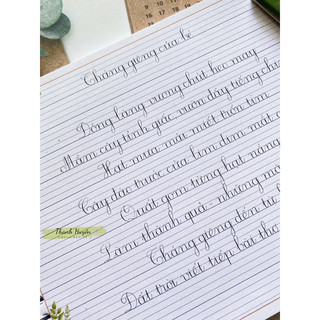 Tháng giêng của bé
Đồng làng vương chút heo may
Mầm cây tỉnh giấc, vườn đầy tiếng chi
Hạt mưa mải miết trốn tìm
Cây đào trước cửa lim dim mắt c
Quất gom từng hạt nắng
Làm thành quả - những mặ
Tháng giêng đến tự b
Đất trời viết tiếp bài thơ
Thanh Huyền